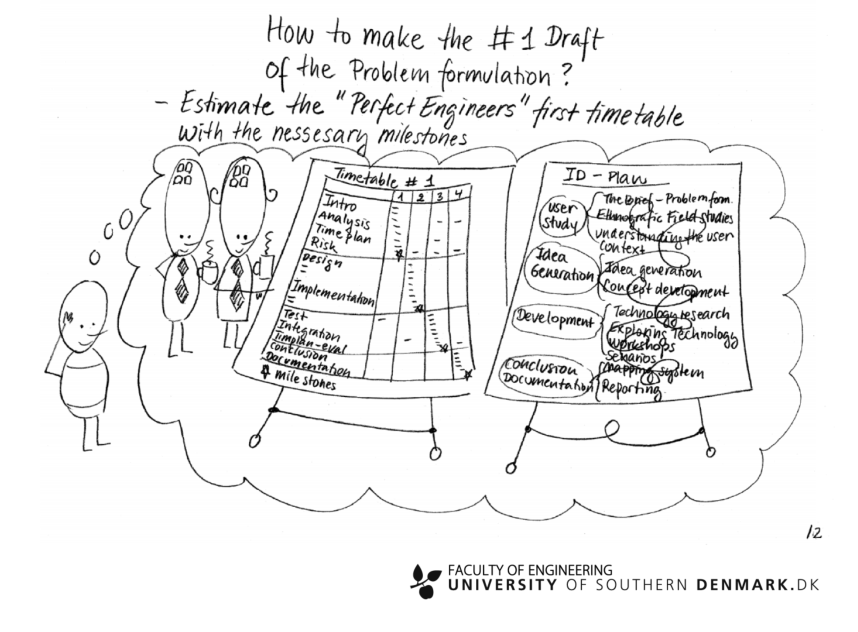 How to make the #1 Draft
of the Problem formulation?
- Estimate the "Perfect Engineers" first timetable
with the nessesary milestones
Timetable # 1
1 2 3 4
Intro
Analysis
Time plan
Risk
Design
Implementation
Test
Integration
Timplan-eval
Conclusion
Documentation
☆ mile stones
ID - Plan
User
study
The Brief - Problem form.
Ethnografic Field studies
understanding the user
context
Idea
Generation
Idea generation
Concept development
Development
Technology research
Exploring Technology
Workshops
Senarios
Conclusion
Documentation
Mapping system
Reporting
12
FACULTY OF ENGINEERING
UNIVERSITY OF SOUTHERN DENMARK.DK